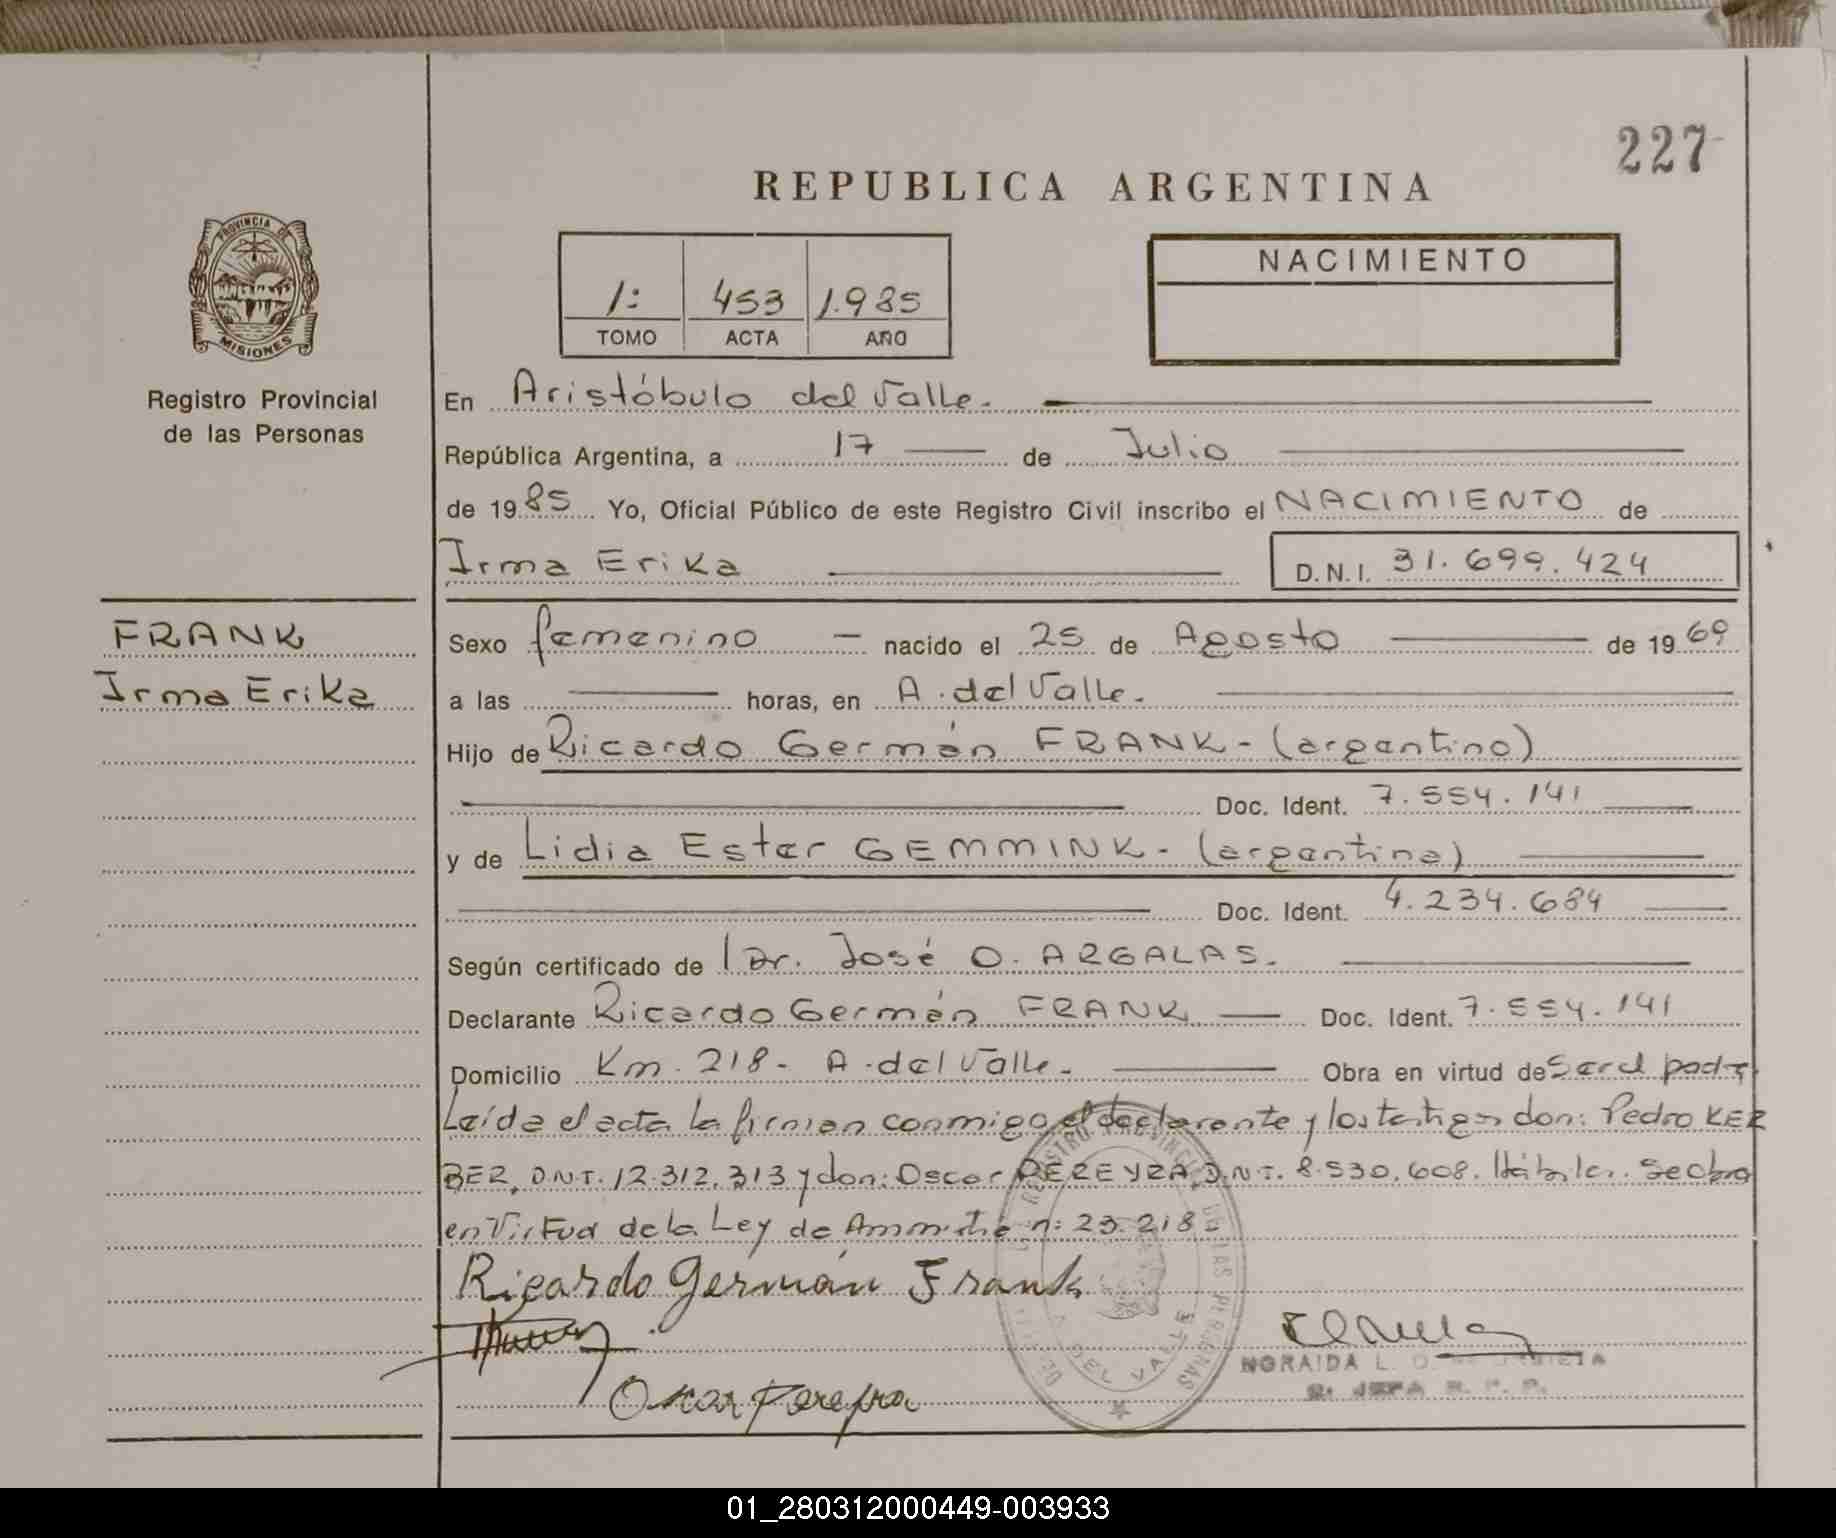 227
REPUBLICA ARGENTINA
PROVINCIA DE
MISIONES
Registro Provincial
de las Personas
1: 453 1.985
TOMO ACTA AÑO
NACIMIENTO
En Aristóbulo del Valle.
República Argentina, a 17 de Julio
de 1985 Yo, Oficial Público de este Registro Civil inscribo el NACIMIENTO de
Irma Erika D.N.I. 31.699.424
FRANK
Irma Erika
Sexo femenino nacido el 25 de Agosto de 1969
a las horas, en A. del Valle.
Hijo de Ricardo Germán FRANK - (argentino)
Doc. Ident. 7.554.141
y de Lidia Ester GEMMINK - (argentina)
Doc. Ident. 4.234.684
Según certificado de Dr. José O. ARGALAS.
Declarante Ricardo Germán FRANK Doc. Ident. 7.554.141
Domicilio Km. 218 - A. del Valle. Obra en virtud de Ser el padre
Leída el acta la firman conmigo el declarante y los testigos don: Pedro KER
BER, D.N.I. 12.312.313 y don: Oscar PEREYRA D.N.I. 8.530.608. Hábiles. Se obra
en Virtud de la Ley de Amnistía n: 23.218
Ricardo Germán Frank
Oscar Pereyra
REGISTRO PROVINCIAL DE LAS PERSONAS
A. DEL VALLE
NORAIDA L.
JEFA R. P. P.
01_280312000449-003933